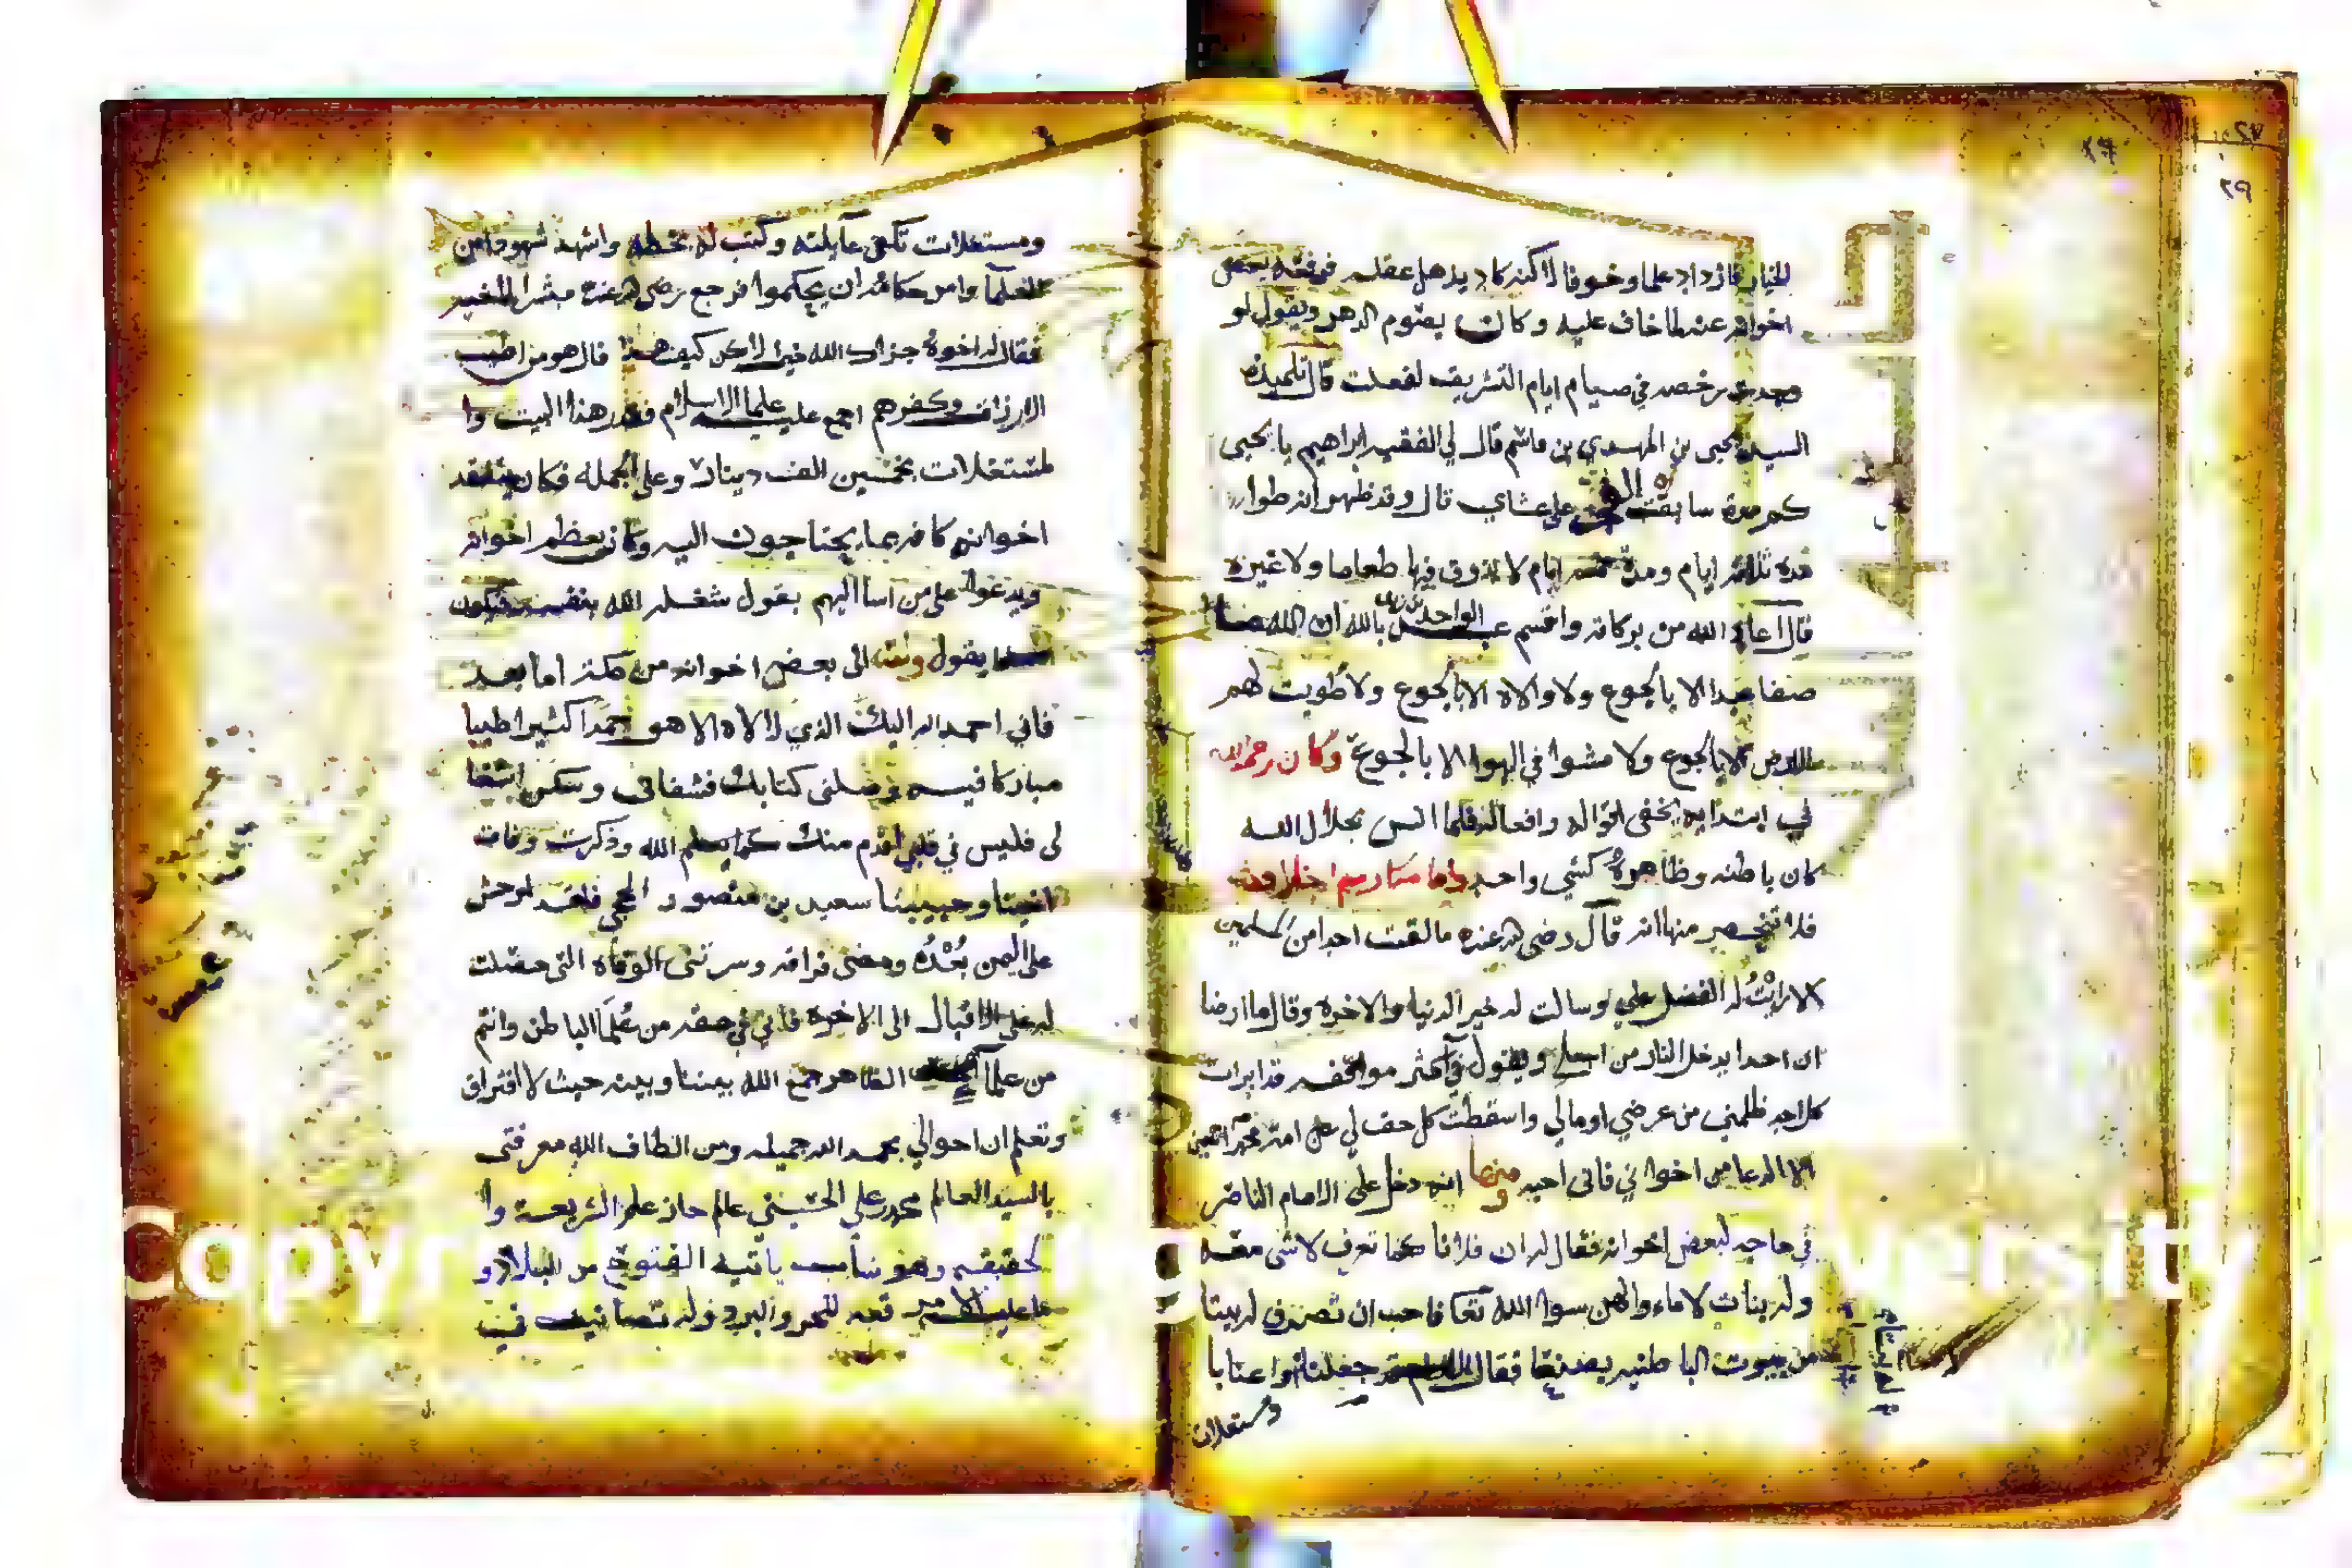 فازداد علما وخوفا لاكنه كاد يذهل عقله فرفقه بعض
اخوانه عند ما خاف عليه وكان يصوم الدهر ويقول لو
وجدت رخصه في صيام ايام التشريق لفعلت قال تلميذه
السيد يحيى بن المهدي بن قاسم قال لي الفقيه ابراهيم يا يحيى
كم مرة سابقت على عشاي قال وقد ظهر انه طوا
مدة ثلاثه ايام ومدة ايام لا يذوق فيها طعاما ولا غيره
قال اعاد الله من بركاته واقسم عبد الواحد بن زيد بالله ان الله ما
صفا عبدا الا بالجوع ولا والاه الا بالجوع ولا طويت لهم
الارض الا بالجوع ولا مشوا في الهوا الا بالجوع وكان رحمه الله
في ابتدايه يخفي اقواله وافعاله فلما انس بجلال الله
كان باطنه وظاهره كشي واحد واما مكارم اخلاقه
فلا تنحصر منها انه قال رضي الله عنه ما لقيت احدا من المسلمين
الا رايت له الفضل علي وسالت له خير الدنيا والاخره وقال ما ارضا
ان احدا يدخل النار من اجلي ويقول في اكثر مواقفه قد ابرات
كل احد ظلمني من عرضي او مالي واسقطت كل حق لي على امة محمد اجمعين
الا الدعا من اخواني فاني احبه ومنها انه دخل على الامام الناصر
في حاجه لبعض اخوانه فقال له ان فلانا كما تعرف لا شي معه
وله بنات لا ماوا لهن سوا الله تعا فاحب ان تصرف له بيتا
من بيوت الباطنيه بصنعا فقال جعلناه واعنابا
ومستغلات
ومستغلات تكفي عايلته وكتب له بخطه واشهد شهودا من
العلما وامر حكامه ان يحكموا فرجع رضي الله عنه مبشرا بالخير
فقال له اخوه جزاك الله خيرا لاكن كيف هذا قال هو من اطيب
الارزاق وكفرهم اجمع عليه علما الاسلام فقدر هذا البيت وا
لمستغلات بخمسين الف دينار وعلى الجمله فكان يتفقد
اخوانه كافه بما يحتاجون اليه وكان يعظم اخوانه
ويدعوا على من اسا اليهم يقول شغله الله بنفسه فيكون
يقول وكتب الى بعض اخوانه من مكة اما بعد
فاني احمد الله اليك الذي لا اله الا هو حمدا كثيرا طيبا
مباركا فيه وصلني كتابك فشفاني وسكن اشتغا
لي فليس في قلبي اقدم منك كما يعلم الله وذكرت وفات
اخينا وحبيبنا سعيد بن منصور الحجي فلقد اوحش
على اليمن بعده ومضني فراقه وسرتني الوفاه التي حصلت
له على الاقبال الى الاخره فاني في صفه من علما الباطن وانتم
من علما الظاهر جمع الله بيننا وبينه حيث لا افتراق
وتعلم ان احوالي بحمد الله جميله ومن الطاف الله معرفتي
بالسيد العالم محمد بن علي الحسيني عالم حاز علم الشريعه وا
لحقيقه وهو شاب ياتيه الفتوح من البلاد و
ما عليه الا قميص للحر والبرد وله تصانيف في